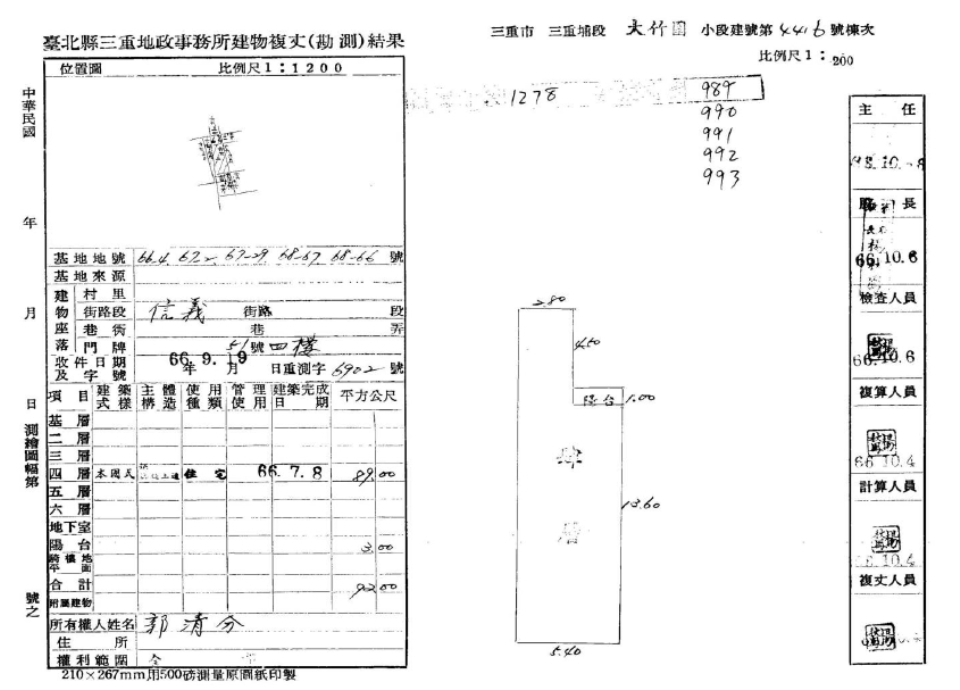 臺北縣三重地政事務所建物複丈(勘測)結果
三重市 三重埔段 大竹圍 小段建號第 4416 號棟次
比例尺1:200
位置圖 比例尺1:1200
中華民國 年 月 日 測繪圖幅第 號之
1278
989
990
991
992
993
基地地號 66.4. 67-2 67-29 68-67 68-66 號
基地來源
建物座落
村里
街路段 信義 街路 段
巷衖 巷 弄
門牌 51號四樓
收件日期及字號 66年9.月19日重測字6902號
項目 建築式樣 主體構造 使用種類 管理使用 建築完成日期 平方公尺
基層
二層
三層
四層 本國式 住宅 66.7.8 89.00
五層
六層
地下室
陽台 3.00
騎樓地平面
合計 92.00
附屬建物
所有權人姓名 郭清分
住所
權利範圍 全
210×267mm用500磅測量原圖紙印製
2.80
4.50
陽台 1.00
13.60
層
5.40
主任
股長
66.10.6
檢查人員
66.10.6
複算人員
66 10.4
計算人員
66.10.4
複丈人員